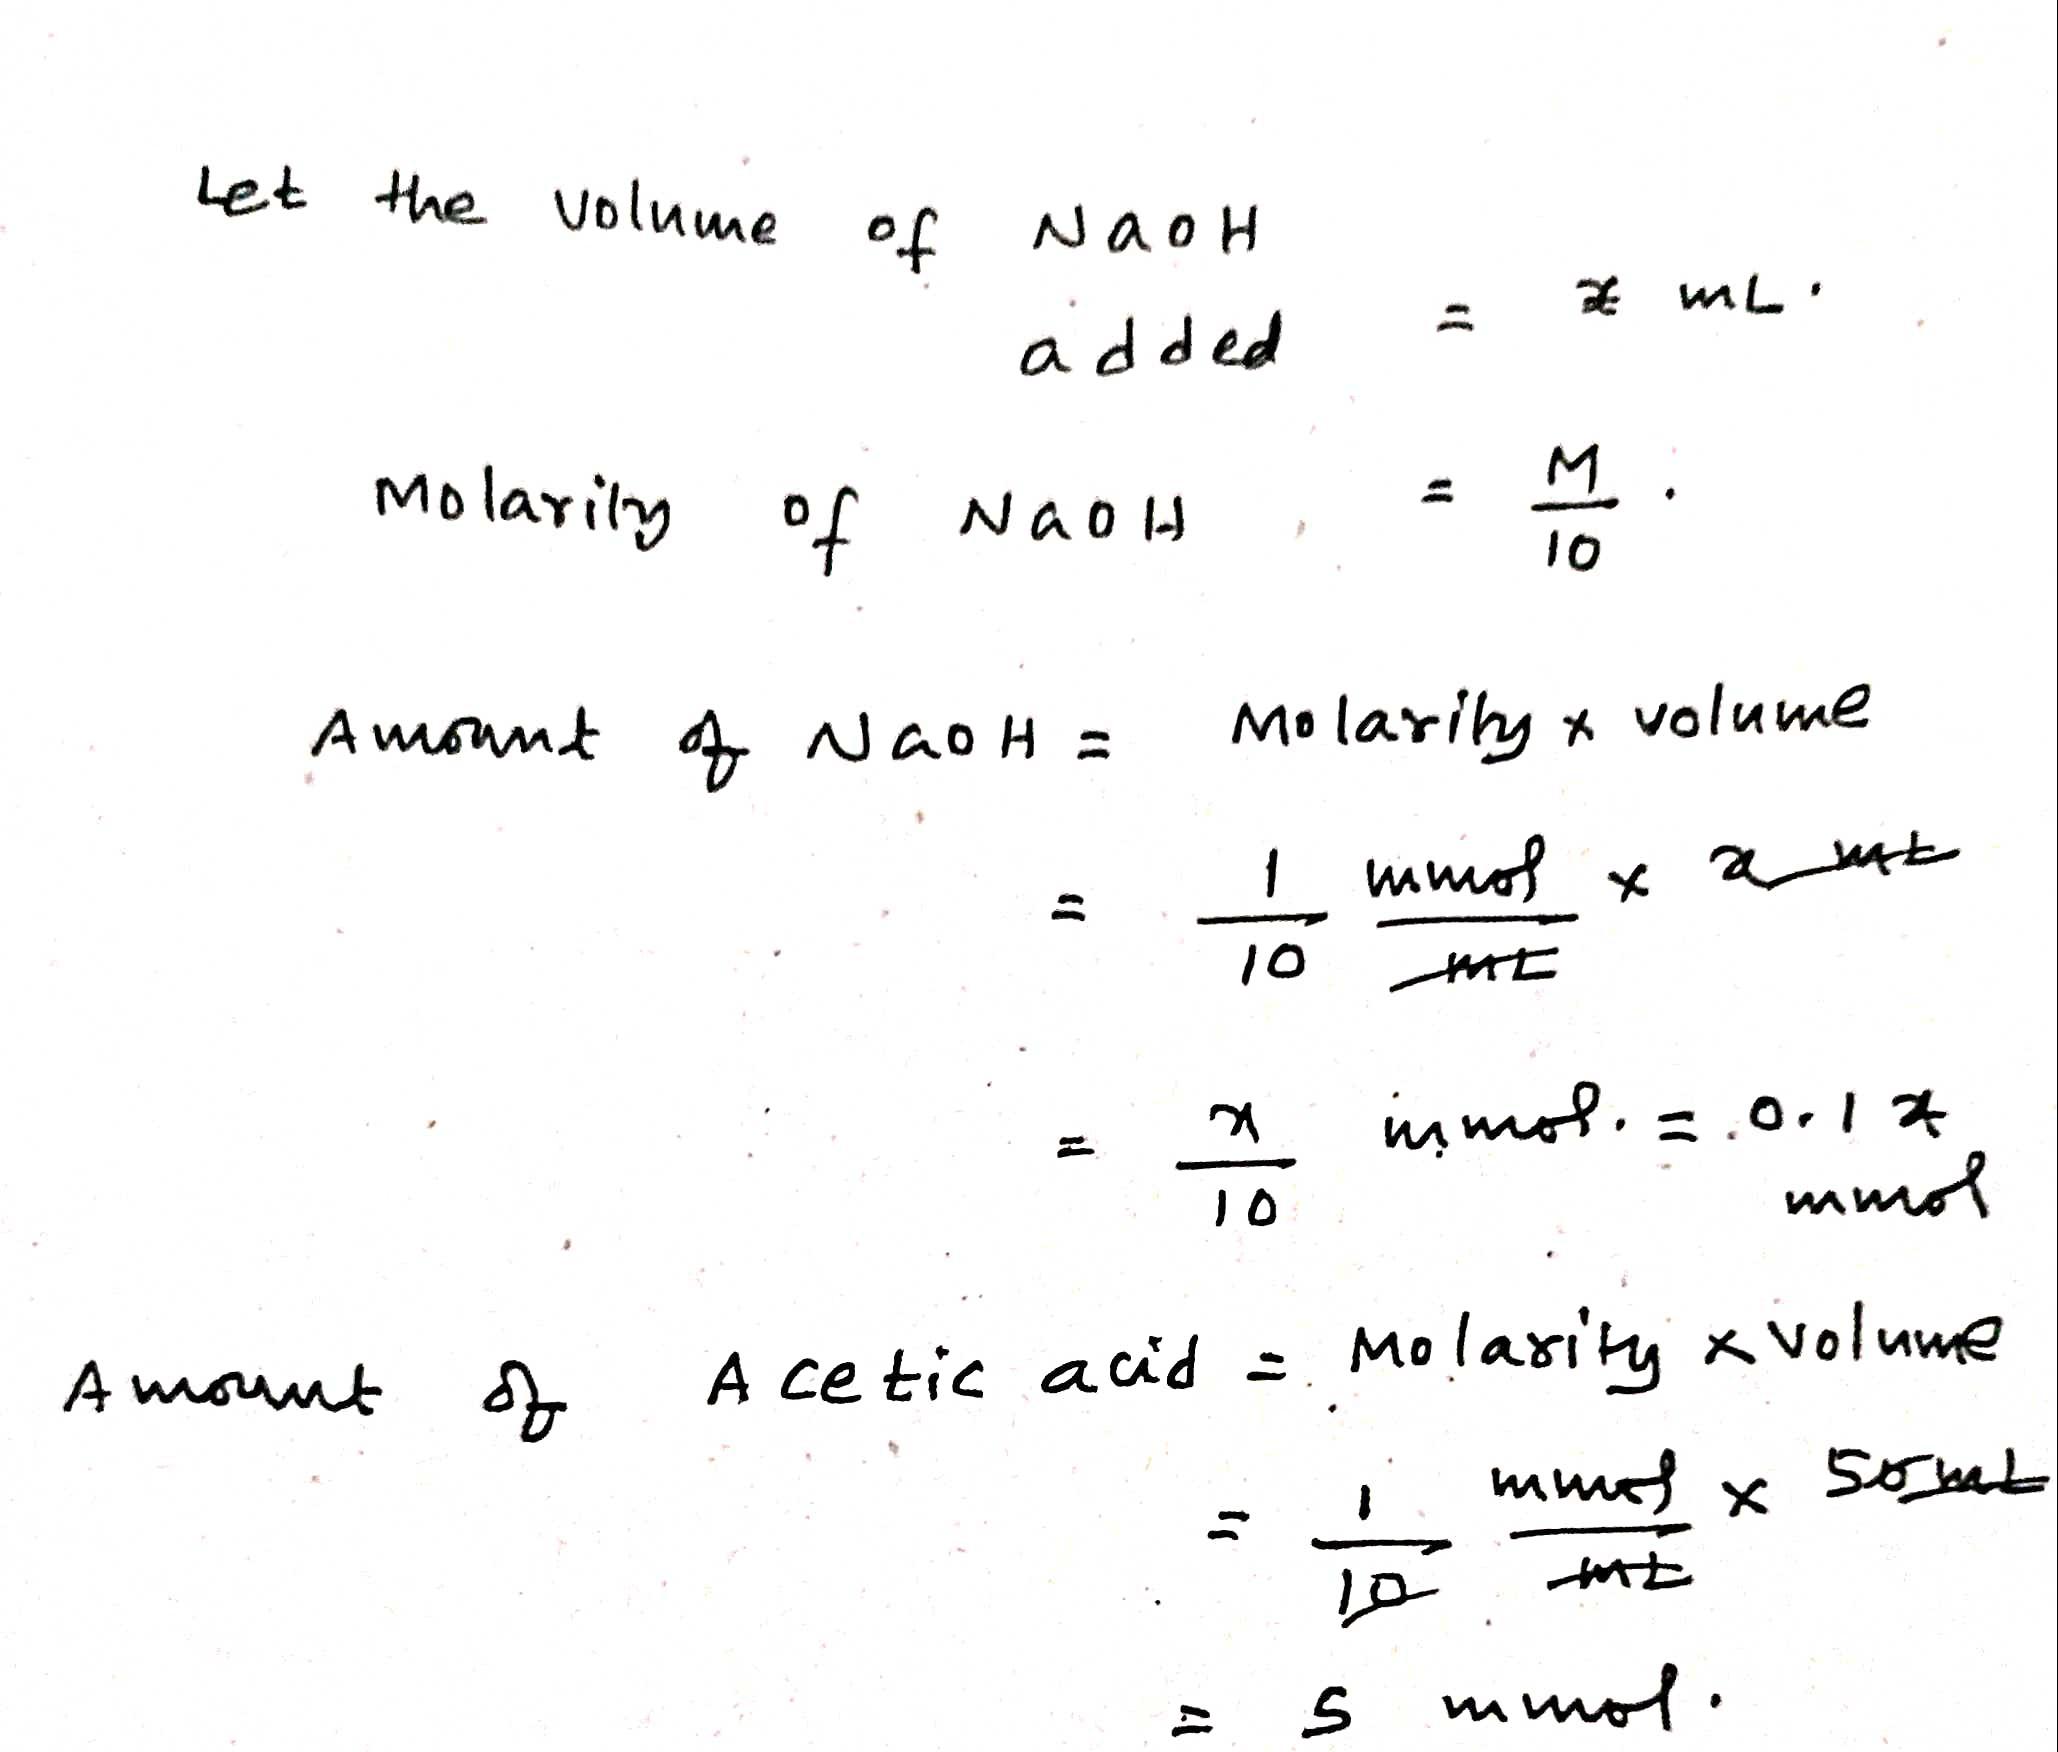 Let the Volume of NaOH
added = x mL.
Molarity of NaOH = M/10.
Amount of NaOH = Molarity x volume
= 1/10 mmol/mL x x mL
= x/10 mmol. = 0.1 x
mmol
Amount of Acetic acid = Molarity x Volume
= 1/10 mmol/mL x 50 mL
= 5 mmol.